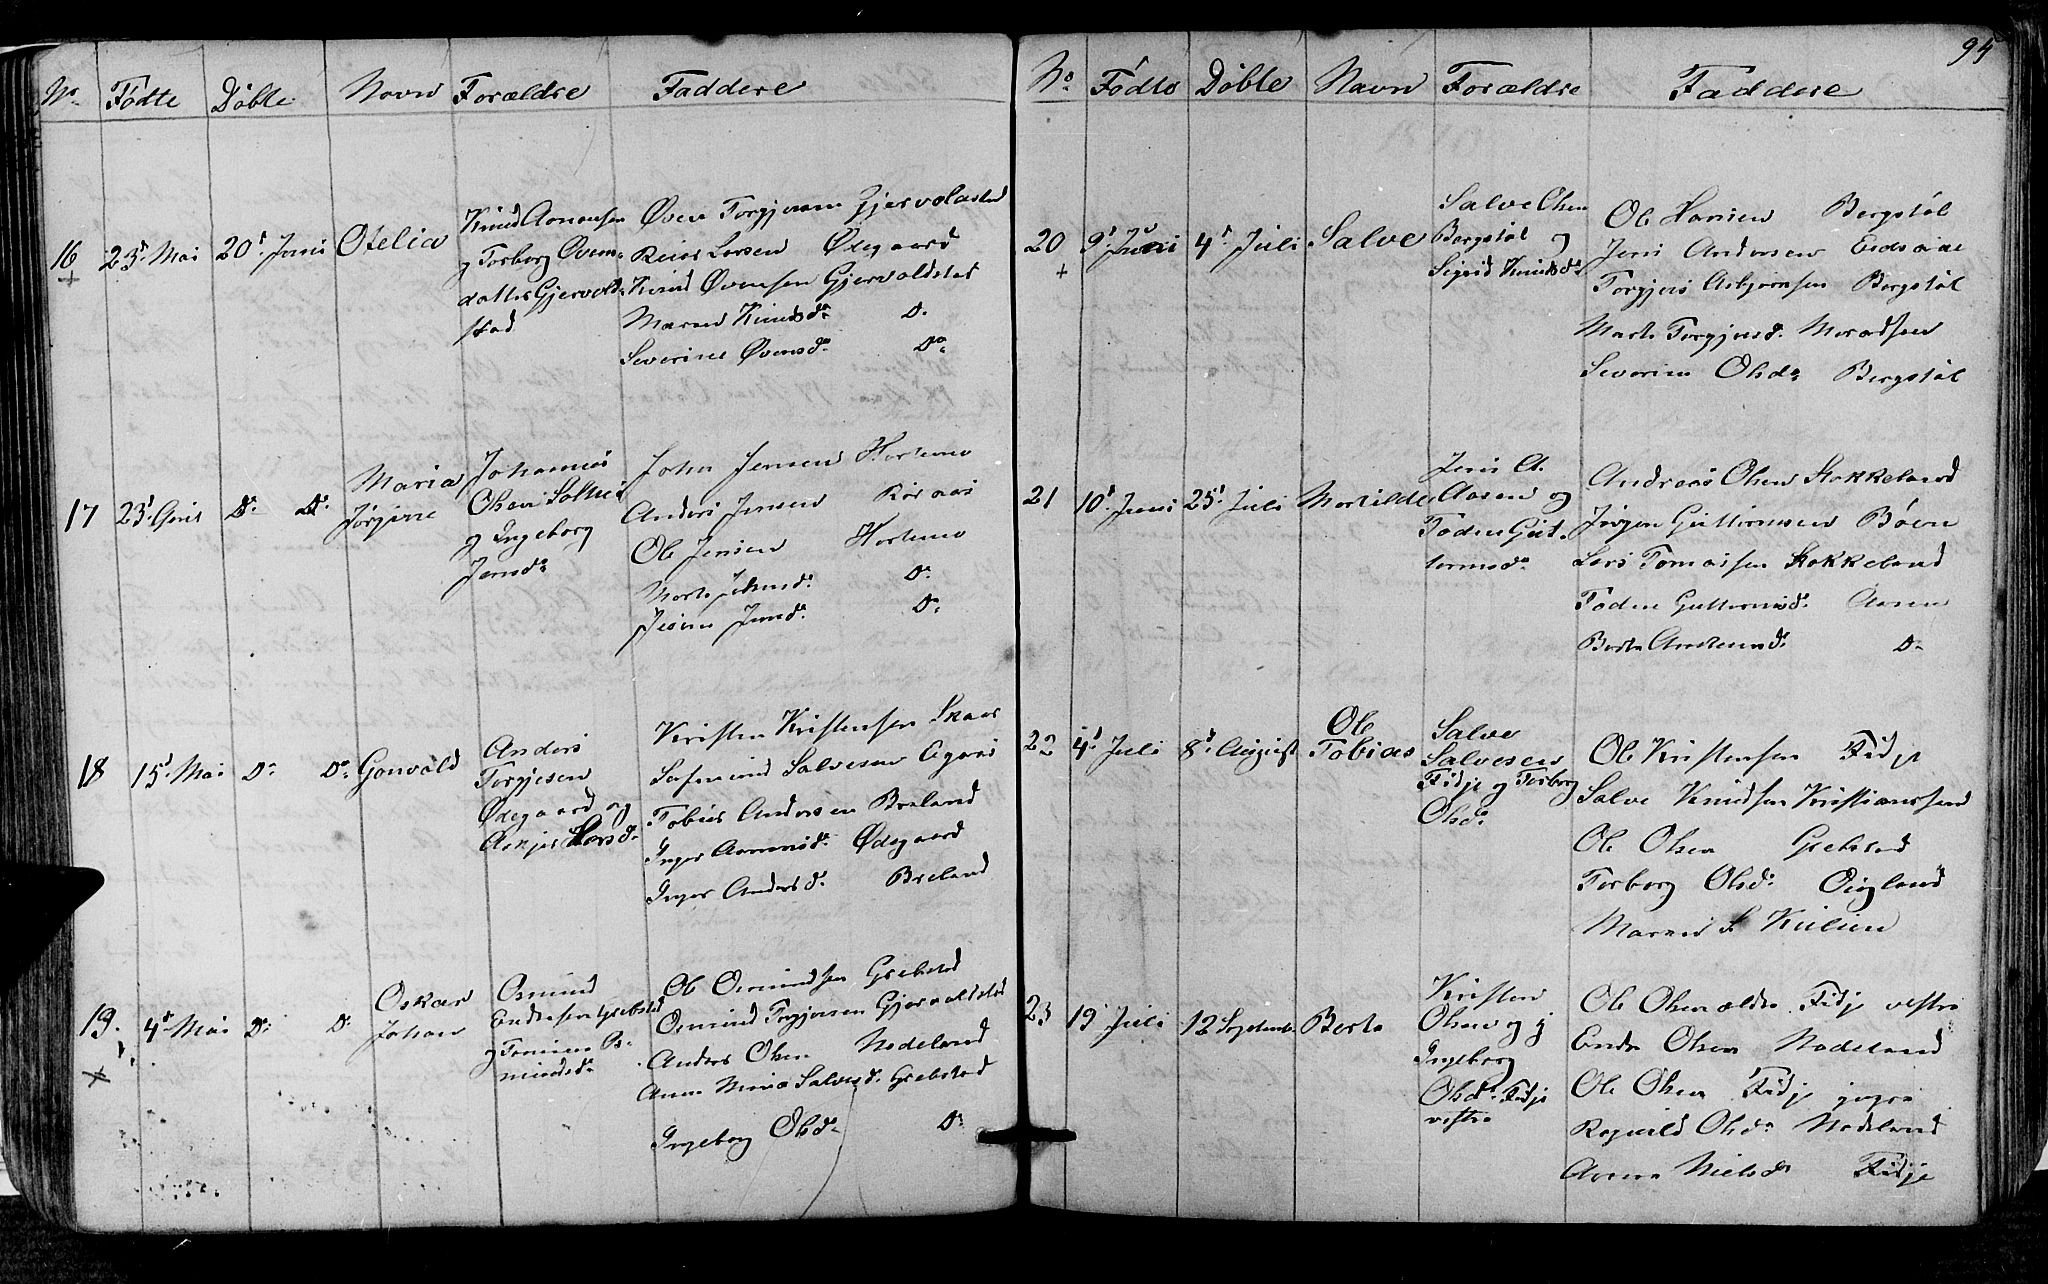 No. Fødte Døbte Navn Forældre Faddere
16 23d. Mai 20d Juni Otelia
Knud Aanensen
og Torborg Øvens-
datter Gjervold-
stad
Øven Torgjersen Gjervoldstad
Reier Larsen Ødegaard
Knud Øvensen Gjervoldstad
Maren Knudsda. Do.
Severine Øvensda. Do.
17 23d. Do. Do. Maria
Jørgine
Johannes
Olsen
og Ingeborg
Jensda.
John Jensen Hortemo
Anders Jensen
Ole Jensen Hortemo
Marte Do.
Jensda. Do.
18 15d. Mai Do. Do. Gonvald
Anders
Torgjesen
Ødegaard og
Larsda.
Kristen Kristensen Skaar
Salvesen
Tobias Andersen Breland
Inger Ødegaard
Inger Andersda. Breland
19. 4d. Mai Do. Do. Oskar
Johan
Osmund
Endresen Grebstad
og Os-
mundsda.
Ole Osmundsen Grebstad
Osmund Torgjersen Gjervoldstad
Anders Olsen Nodeland
Anne Maria Salvesd. Grebstad
Ingeborg Olsda. Do.
94
No. Fødte Døbte Navn Forældre Faddere
20 9d. Juni 4d. Juli Salve
Salve Olsen
Bergstøl og
Sigrid Knudsda.
Ole Hansen Bergstøl
Jens Andersen
Torgjers Asbjørnsen Bergstøl
Marte Torgjersd.
Severine Olsda. Bergstøl
21 10d. Juni 25d. Juli Matilde
Jens A.
Aasen og
Todne Gut-
tormsda.
Andreas Olsen Stokkeland
Jørgen Guttormsen Bøen
Lars Tomassen Stokkeland
Todne Guttormsd. Aasen
Berte Do.
22 4d. Juli 8d. August Ole
Tobias
Salve
Salvesen
Fidje og Torborg
Olsda.
Ole Kristensen Fidje
Salve Knudsen Kristianssand
Ole Olsen Grebstad
Torborg Olsda. Øigland
Maren S.
23 19 Juli 12 Septembr. Berte
Kristen
Olsen og
Ingeborg
Olsda. Fidje
vestre
Ole Olsen ældre Fidje vestre
Endre Olsen Nodeland
Ole Olsen Fidje yngre
Ragnild Olsda. Nodeland
Anne Nielsda. Fidje